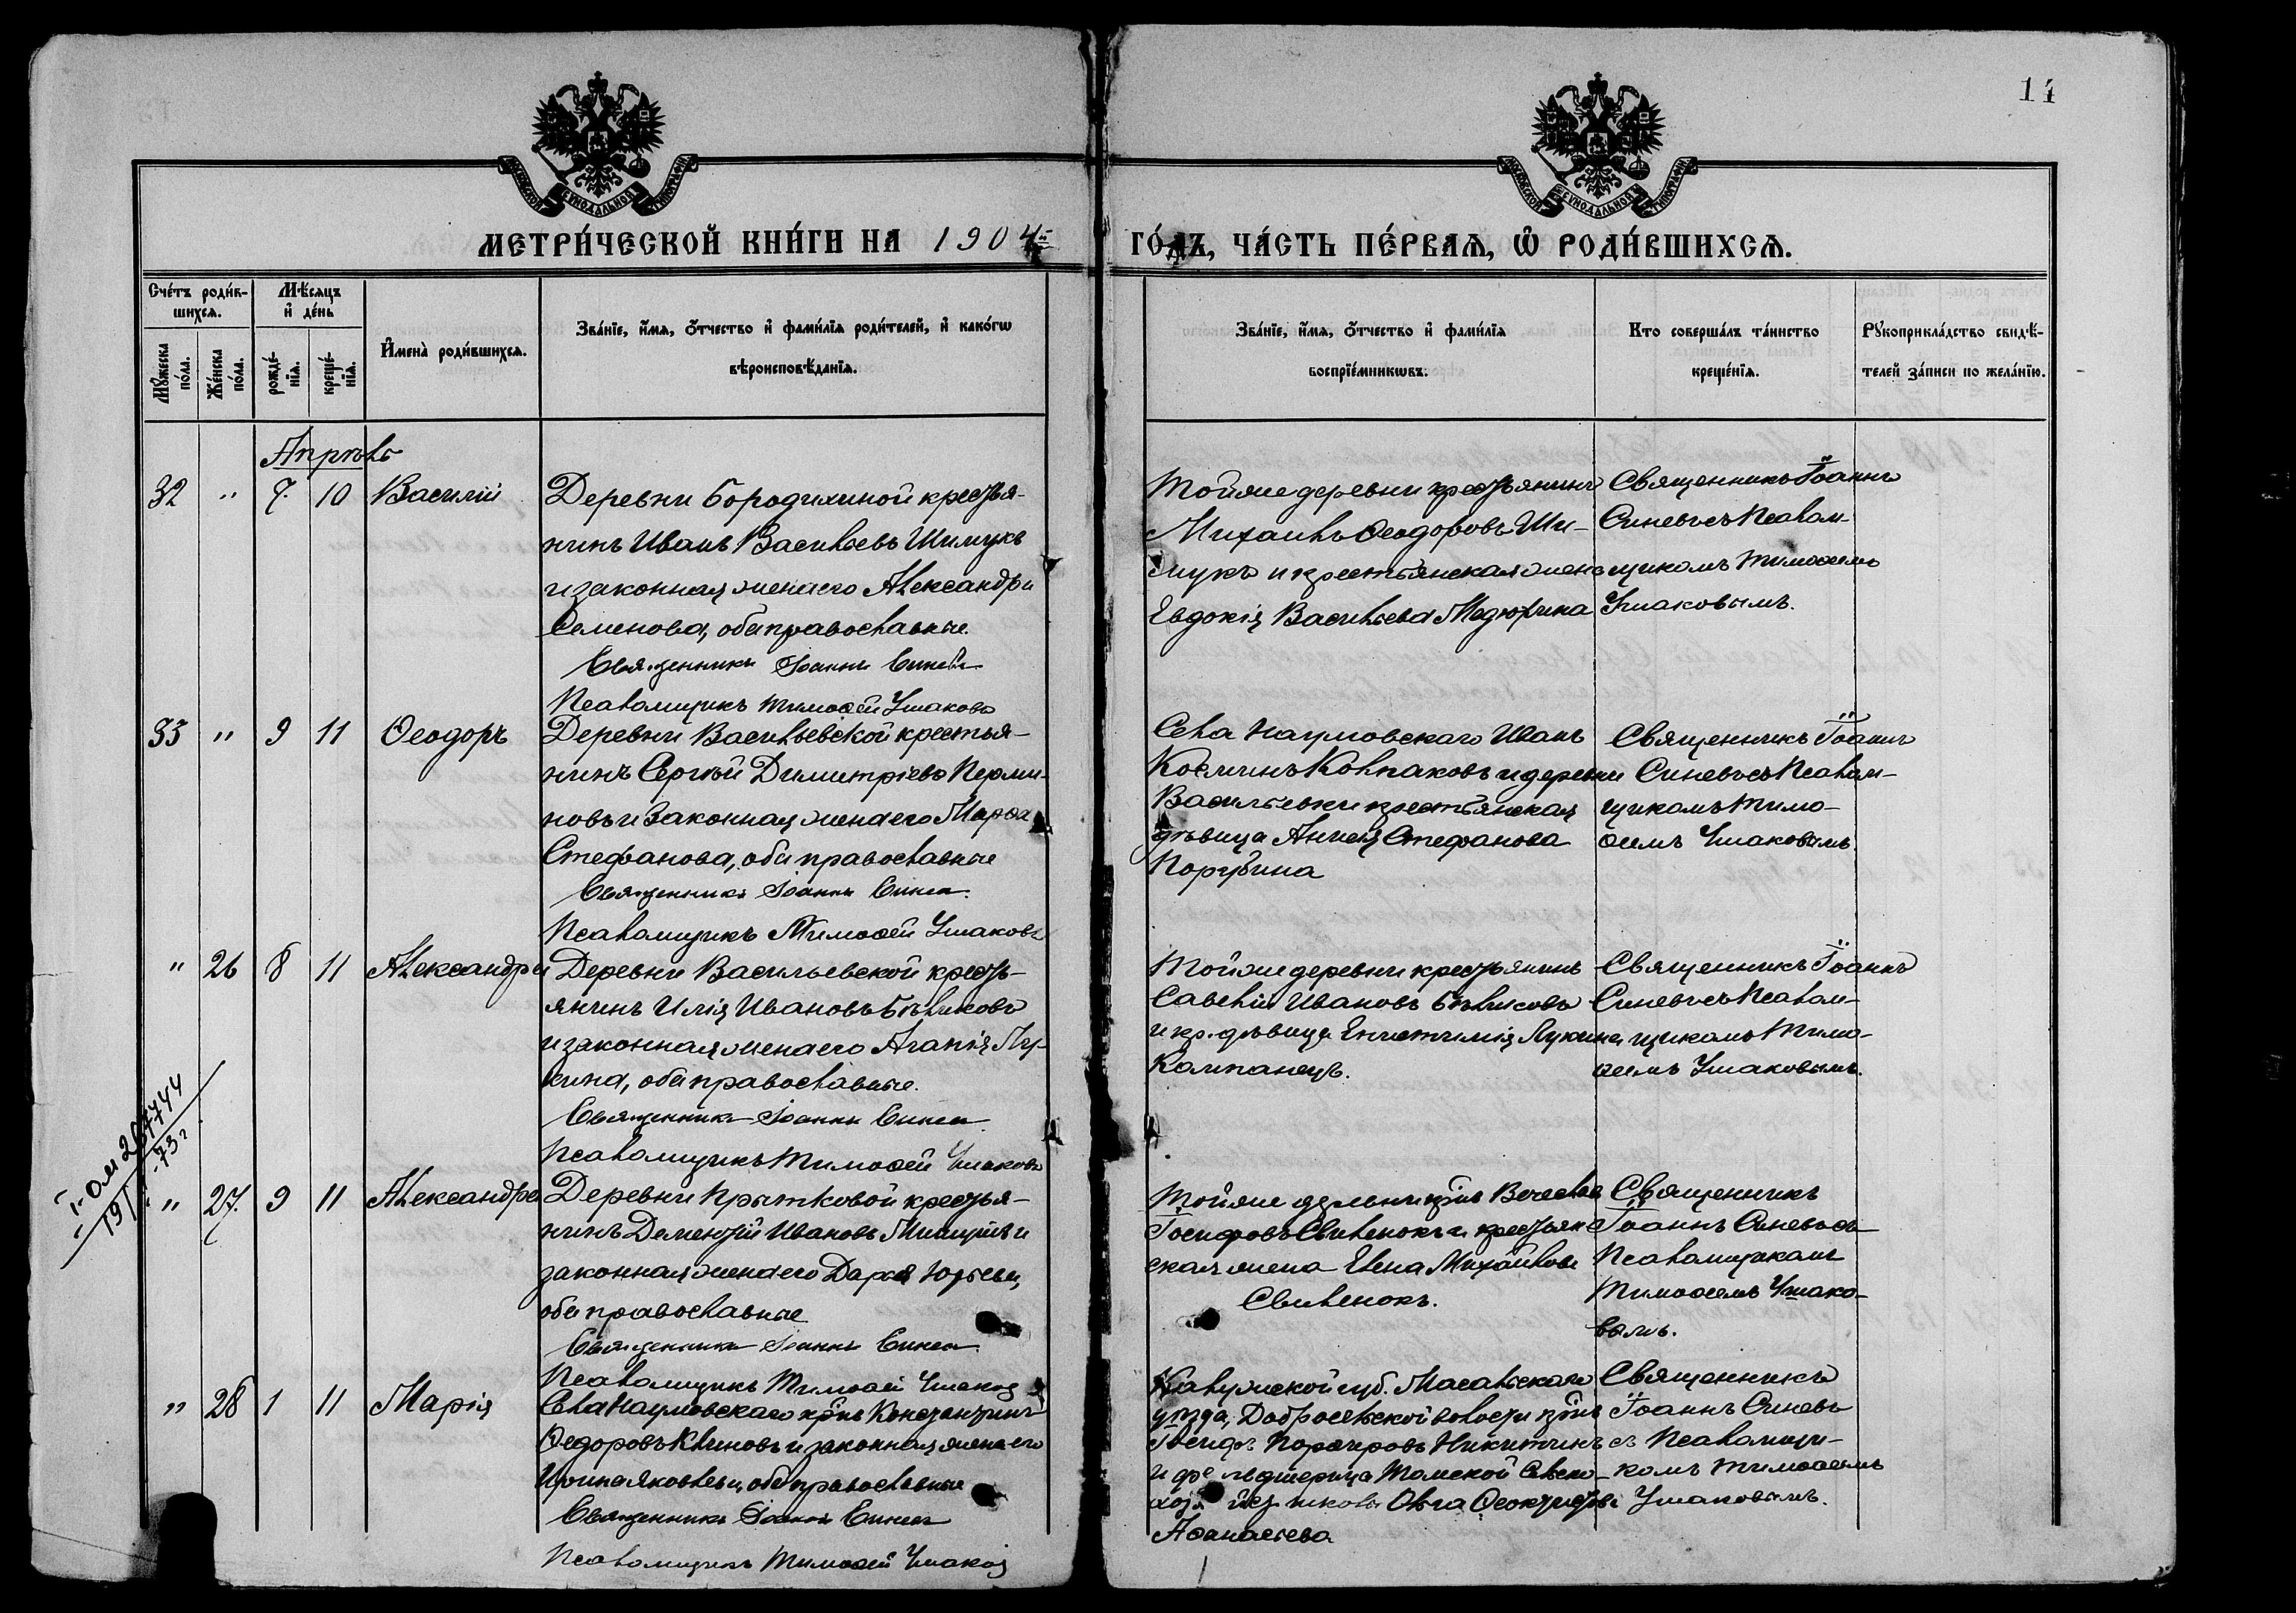 14
МОСКОВСКОЙ СѴНОДАЛЬНОЙ ТИПОГРАФІИ
МОСКОВСКОЙ СѴНОДАЛЬНОЙ ТИПОГРАФІИ
МЕТРИ́ЧЕСКОЙ КНИ́ГИ НА 1904й
ГО́ДЪ, ЧА́СТЬ ПЕ́РВАѦ, Ѡ҆ РОДИ́ВШИХСѦ.
Сче́тъ роди́в-
шихсѧ.
Мꙋ́жеска по́ла.
Же́нска по́ла.
Мѣ́сѧцъ
и҆ де́нь
рожде́-
нїѧ.
креще́-
нїѧ.
И҆мена̀ роди́вшихсѧ.
Зва́нїе, и҆́мѧ, ѻ҆́тчество и҆ фами́лїѧ роди́телей, и҆ како́гѡ
вѣроисповѣ́данїѧ.
Зва́нїе, и҆́мѧ, ѻ҆́тчество и҆ фами́лїѧ
воспрїе́мникѡвъ.
Кто соверша́лъ та́инство
креще́нїѧ.
Рꙋкоприкла́дство свидѣ́-
телей за́писи по жела́нїю.
Апрѣль
32 " 7. 10 Василій
Деревни Бородихиной крестья-
нинъ Иванъ Васильевъ Шимукъ
и законная жена его Александра
Семенова, оба православные.
Священникъ Іоаннъ Синевъ
Псаломщикъ Тимоѳей Ушаковъ
Тойже деревни крестьянинъ
Михаилъ Ѳеодоровъ Ши-
мукъ и крестьянская жена
Евдокія Васильева
Священникъ Іоаннъ
Синевъ съ Псалом-
щикомъ Тимоѳеемъ
Ушаковымъ.
33 " 9 11 Ѳеодоръ
Деревни Васильевской крестья-
нинъ Сергѣй Димитріевъ Перми-
новъ и законная жена его Марѳа
Стефанова, оба православные
Священникъ Іоаннъ Синевъ
Псаломщикъ Тимоѳей Ушаковъ
Села Наумовскаго Иванъ
Косминъ Колпаковъ и деревни
Васильевки крестьянская
дѣвица Стефанова
Священникъ Іоаннъ
Синевъ съ Псалом-
щикомъ Тимо-
ѳеемъ Ушаковымъ.
" 26 8 11 Александра
Деревни Васильевской кресть-
янинъ Илія Ивановъ Бѣликовъ
и законная жена его Агапія Лу-
кина, оба православные.
Священникъ Іоаннъ Синевъ
Псаломщикъ Тимоѳей Ушаковъ
Тойже деревни крестьянинъ
Савелій Ивановъ Бѣликовъ
и кр. дѣвица Епистимія Лукина
Компанецъ.
Священникъ Іоаннъ
Синевъ съ Псалом-
щикомъ Тимо-
ѳеемъ Ушаковымъ.
" 27. 9 11 Александра
Деревни Прытковой крестья-
нинъ Дементій Ивановъ и
законная жена его Дарья Юрьева,
оба православные
Священникъ Іоаннъ Синевъ
Псаломщикъ Тимоѳей Ушаковъ
Іосифовъ Свиленокъ и крестьян-
ская жена Елена Михайлова
Свиленокъ.
Священникъ
Іоаннъ Синевъ съ
Псаломщикомъ
Тимоѳеемъ Ушако-
вымъ.
" 28 1 11 Марія
Села Наумовскаго кр-нъ Константинъ
Ѳедоровъ Клиновъ и законная жена его
Ирина Яковлева, оба православные
Священникъ Іоаннъ Синевъ
Псаломщикъ Тимоѳей Ушаковъ
Калужской губ. Масальскаго
уѣзда, Добросельской волости кр-нъ
Іосифъ Порфировъ Никитинъ
и фельдшерица Томской
Ольга Ѳеоктистова
Аѳанасьева
Священникъ
Іоаннъ Синевъ
съ Псаломщи-
комъ Тимоѳеемъ
Ушаковымъ.